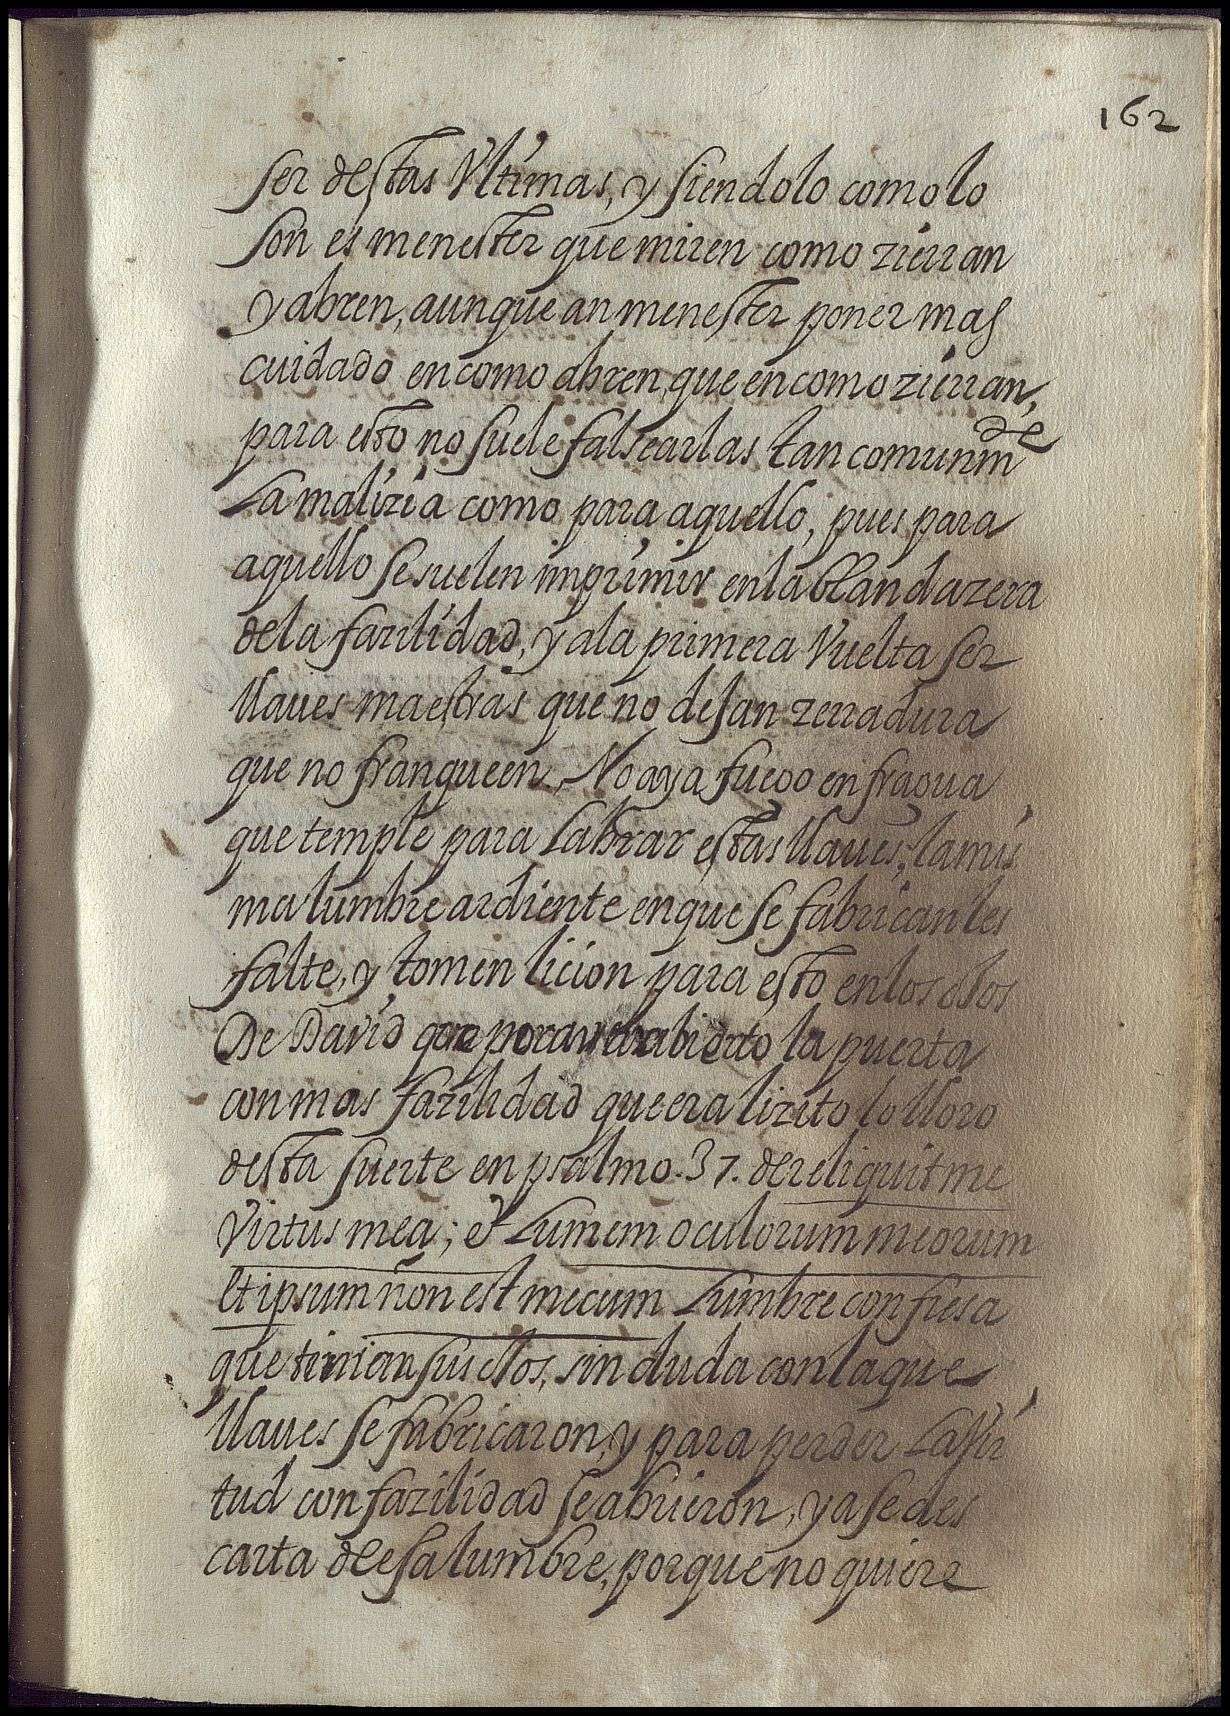 162
ser destas Vltimas, y siendolo como lo
son es menester que miren como zierran
y abren, aunque an menester poner mas
cuidado en como abren, que en como zierran,
para esto no suele falsearlas tan comunmde
La malizia como para aquello, pues para
aquello se suelen imprimir en la blanda zera
de la fazilidad, y a la primera Vuelta ser
llaues maestras que no desan zerradura
que no franqueen. No aya fuego en fragua
que temple para Labrar estas llaues, la mis
ma lumbre ardiente en que se fabrican les
falte, y tomen licion para esto en los osos
De David que por aver abierto la puerta
con mas fazilidad que era lizito lo lloro
desta suerte en psalmo. 37. dereliquit me
Virtus mea; et Lumem oculorum meorum
et ipsum ñon est mecum Lumbre confiesa
que tenian sus osos, sin duda con la que
llaues se fabricaron, y para perder La Vir
tud con fazilidad se abrieron, ya se des
carta de esa lumbre, porque no quiere